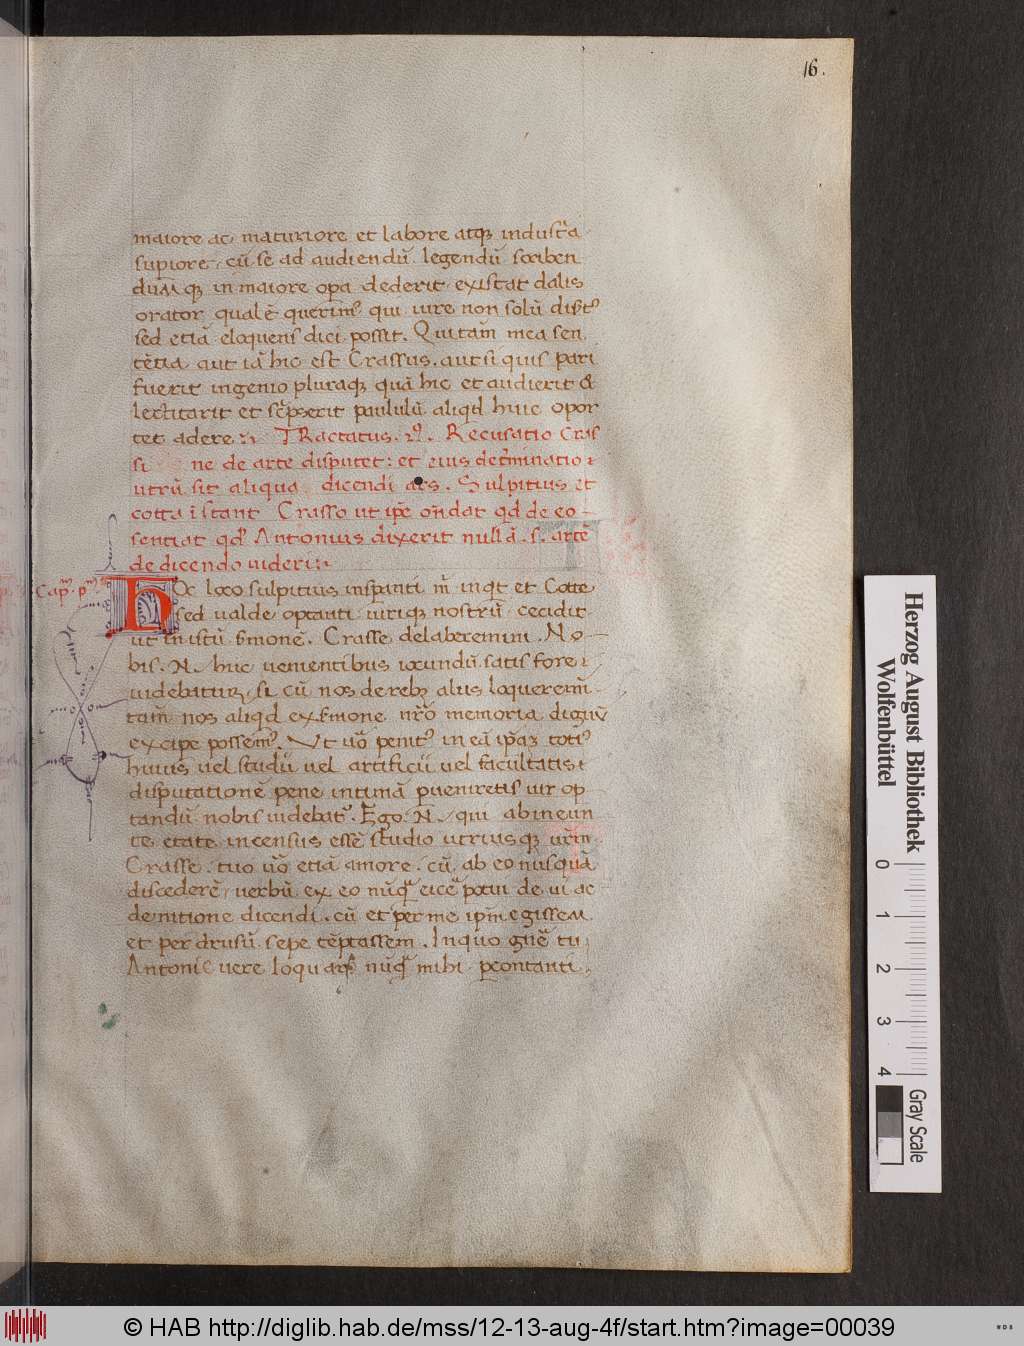 16.
maiore ac maturiore et labore atqꝫ industᵃa
supiore, cū se ad audiendū legendū scriben
dūm qꝫ in maiore opa dederit existat dalis
orator qualē querimꝰ qui iure non solū disᵗꝰ
sed etiā eloquens dici possit. Qui tam̄ mea sen
tētia aut iā hic est Crassus. aut si quis pari
fuerit ingenio pluraqꝫ quā hic et audierit &
lectitarit et scᵖserit paululū aliqd huic opor
tet adere Tractatus. 2ꝰ. Recusatio Cras
si ne de arte disputet: et eius detᵉminatio
utrū sit aliqua dicendi ars. Sulpitius et
cotta īstant Crasso ut ipe on̄dat qd de eo
sentiat qd Antonius dixerit nullā .s. artē
de dicendo uideri
Cap.m pm
Hoc loco sulpitius inspanti m̄ inqt et Cotte
sed ualde optanti utriqꝫ nostrū cecidit
ut in istū sᵉmonē. Crasse delaberemini. No
bis .N. huc uenientibus iocundū satis fore
uidebatur, si cū nos de rebꝫ aliis loqueremī
tam̄ nos aliqd ex sᵉmone nr̄o memoria dignū
excipe possemꝰ. Ut uᵒ penitꝰ in eā ipaꝫ totiꝰ
huius uel studii uel artificii uel facultatis
disputationē pene intimā pueniretis uix op
tandū nobis uidebatꝰ. Ego .N. qui ab ineun
te etate incensus essē studio utriusqꝫ ur̄m
Crasse. tuo uᵒ etiā amore. cū ab eo nusquā
discederē, uerbū ex eo nūqᵃ elicᵉe potui de ui ac
de nitione dicendi. cū et per me ipm̄ egissem
et per drusū sepe tēptassem. In quo gn̄e tu
Antoni uere loquar nūqᵃ mihi pcontanti
Herzog August Bibliothek
Wolfenbüttel
0 1 2 3 4
Gray Scale
© HAB http://diglib.hab.de/mss/12-13-aug-4f/start.htm?image=00039